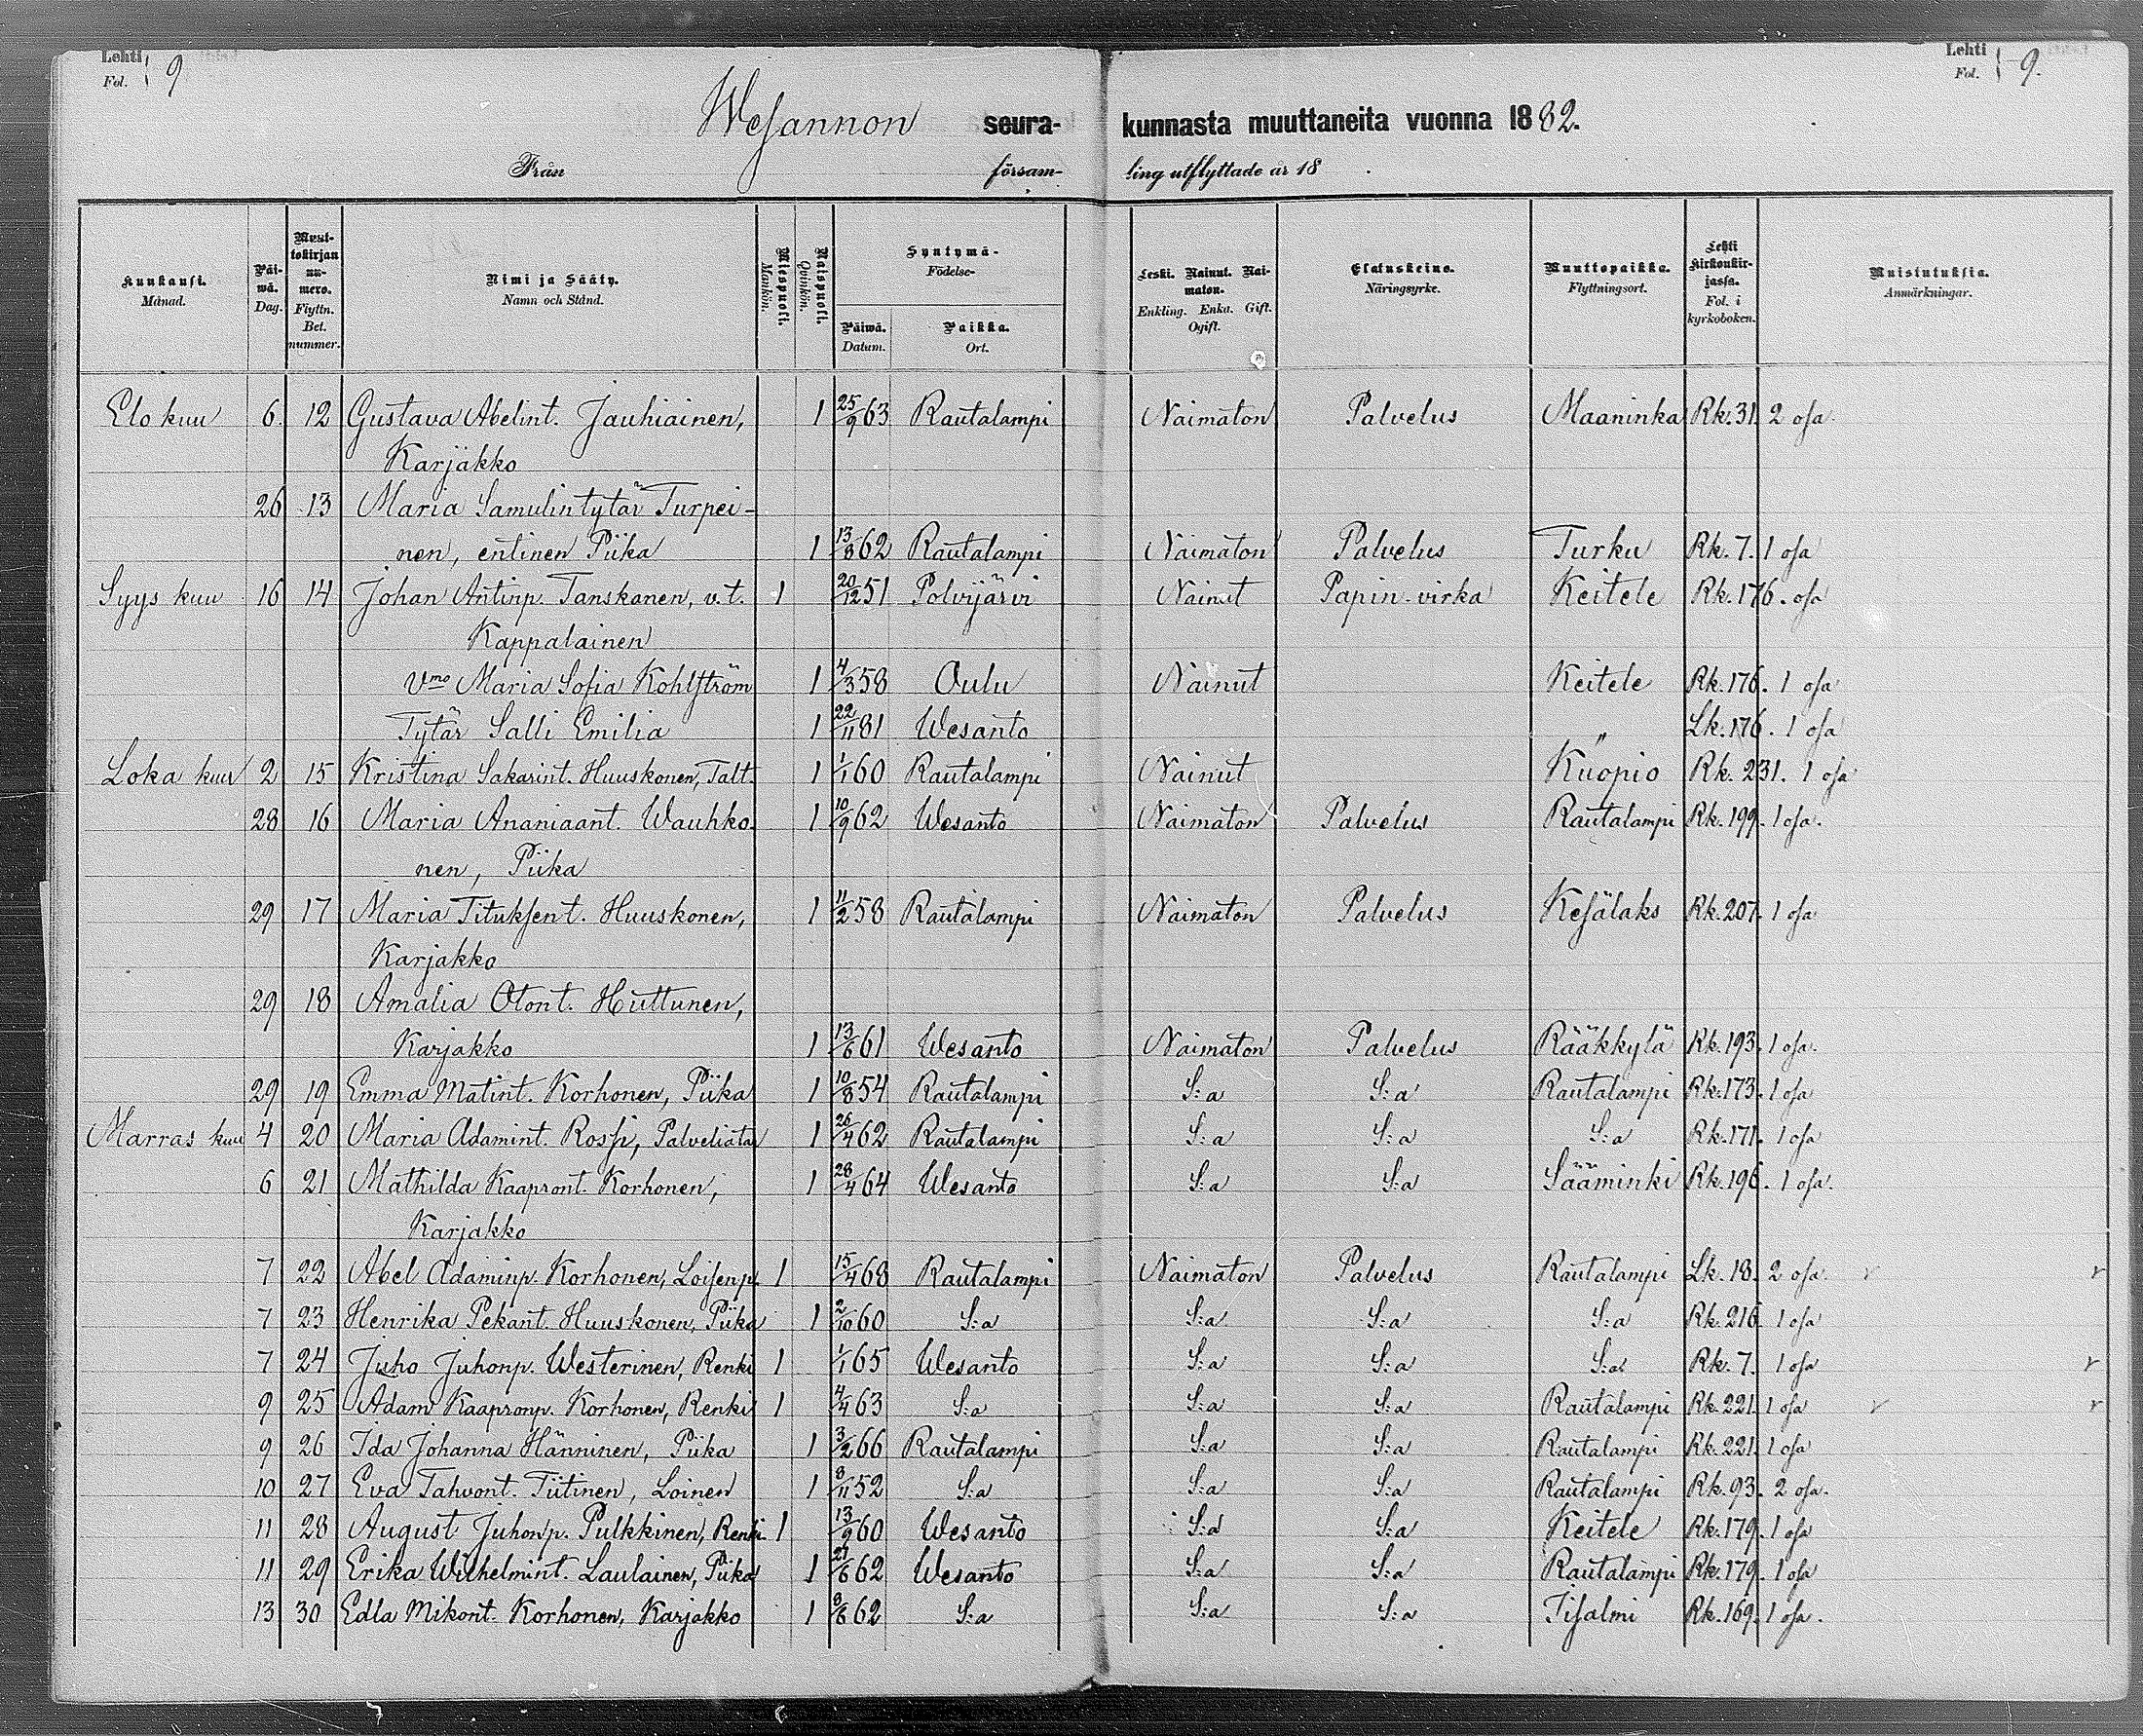 Lehti 9
Fol.
Lehti 9.
Fol.
Wesannon seurakunnasta muuttaneita vuonna 1882.
Från församling utflyttade år 18 .
Kuukausi. Månad.
Päiwä. Dag.
Muuttokirjan numero. Flyttn. Bet. nummer.
Nimi ja Sääty. Namn och Stånd.
Miespuoli. Mankön.
Naispuoli. Qvinkön.
Syntymä- Födelse-
Päiwä. Datum.
Paikka. Ort.
Leski. Nainut. Naimaton. Enkling. Enka. Gift. Ogift.
Elatuskeino. Näringsyrke.
Muuttopaikka. Flyttningsort.
Lehti kirkonkirjassa. Fol. i kyrkoboken.
Muistutuksia. Anmärkningar.
Elo kuu 6. 12 Gustava Abelint. Jauhiainen, 1 25/9 63 Rautalampi Naimaton Palvelus Maaninka Rk. 31. 2 osa.
Karjäkko
26 13 Maria Samulintytär Turpei-
nen, entinen Piika 1 13/8 62 Rautalampi Naimaton Palvelus Turku Rk. 7. 1 osa
Syys kuu 16 14 Johan Antinp. Tanskanen, v.t. 1 20/12 51 Polvijärvi Nainut Papin-virka Keitele Rk. 176. osa
Kappalainen
Vmo Maria Sofia Kohlström 1 4/3 58 Oulu Nainut Keitele Rk. 176. 1 osa
Tytär Salli Emilia 1 22/11 81 Wesanto " Lk. 176. 1 osa
Loka kuu 2 15 Kristina Sakarint. Huuskonen, Talt. 1 1/1 60 Rautalampi Nainut Kuopio Rk. 231. 1 osa
28 16 Maria Ananiaant. Wauhko- 1 10/9 62 Wesanto Naimaton Palvelus Rautalampi Rk. 199. 1 osa.
nen, Piika
29 17 Maria Tituksent. Huuskonen, 1 11/2 58 Rautalampi Naimaton Palvelus Kesälaks Rk. 207. 1 osa
Karjakko
29 18 Amalia Otont. Huttunen,
Karjakko 1 13/6 61 Wesanto Naimaton Palvelus Rääkkylä Rk. 193. 1 osa.
29 19 Emma Matint. Korhonen, Piika 1 10/8 54 Rautalampi S:a S:a Rautalampi Rk. 173. 1 osa
Marras kuu 4 20 Maria Adamint. Rossi, Palveliatar 1 26/4 62 Rautalampi S:a S:a S:a Rk. 171. 1 osa
6 21 Mathilda Kaapront. Korhonen, 1 28/4 64 Wesanto S:a S:a Sääminki Rk. 196. 1 osa.
Karjakko
7 22 Abel Adaminp. Korhonen, Loisenp. 1 15/4 68 Rautalampi Naimaton Palvelus Rautalampi Lk. 18. 2 osa.
7 23 Henrika Pekant. Huuskonen, Piika 1 2/10 60 S:a S:a S:a S:a Rk. 216. 1 osa
7 24 Juho Juhonp. Westerinen, Renki 1 1/1 65 Wesanto S:a S:a S:a Rk. 7. 1 osa
9 25 Adam Kaapronp. Korhonen, Renki 1 4/4 63 S:a S:a S:a Rautalampi Rk. 221. 1 osa
9 26 Ida Johanna Hänninen, Piika 1 3/2 66 Rautalampi S:a S:a Rautalampi Rk. 221. 1 osa
10 27 Eva Tahvont. Tiitinen, Loinen 1 8/11 52 S:a S:a S:a Rautalampi Rk. 93. 2 osa.
11 28 August Juhonp. Pulkkinen, Renki 1 13/9 60 Wesanto S:a S:a Keitele Rk. 179. 1 osa
11 29 Erika Wilhelmint. Laulainen, Piika 1 27/6 62 Wesanto S:a S:a Rautalampi Rk. 179. 1 osa
13 30 Edla Mikont. Korhonen, Karjakko 1 8/6 62 S:a S:a S:a Iisalmi Rk. 169. 1 osa.